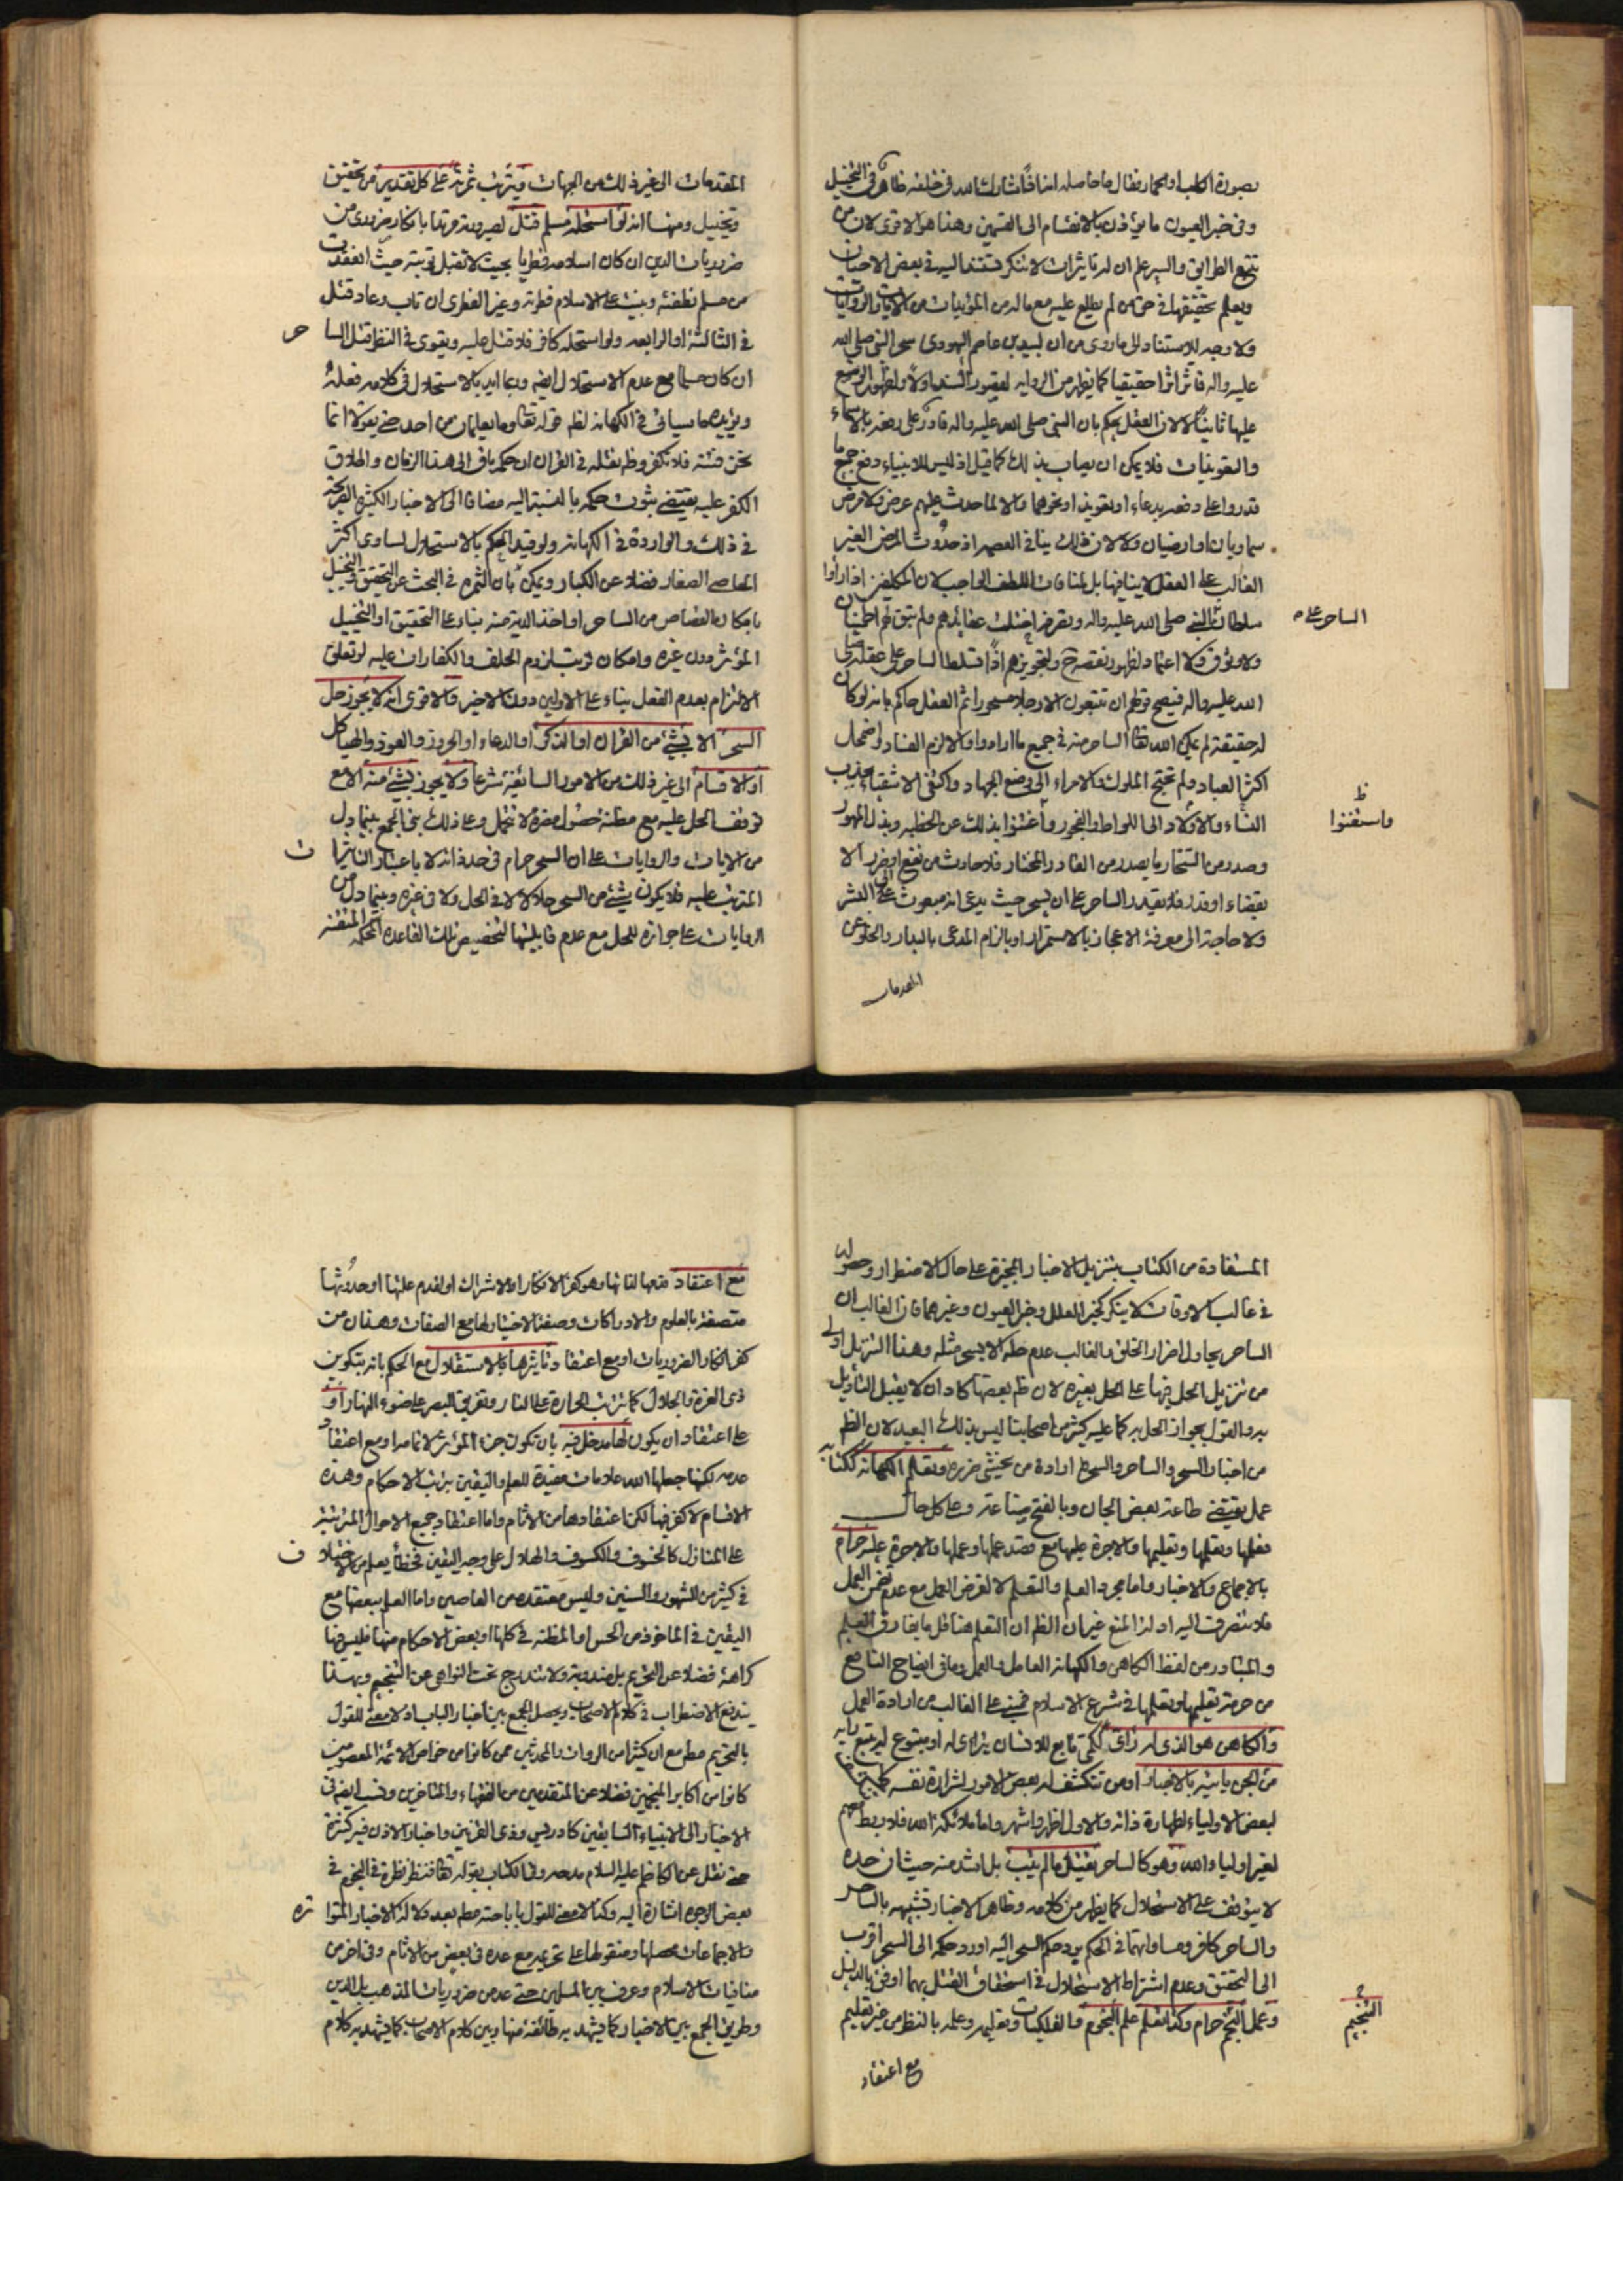 بصورة الكلب او الحمار فقال ما حاصله اذا قاتشارك الله في خلقه ظاهر في التخييل
وفى خبر العيون ما يؤذن بالانقسام الى القسمين وهذا هو الاقوى لان من
تتبع الطرايق والسير علم ان له تاثيرات لا تنكر تستند اليه في بعض الاحيان
ويعلم تحقيقها في حق من لم يطلع عليه مع ماله من المؤيدات من الايات والروايات
ولا وجه للاستناد الى ما روى من ان لبيد بن عاصم اليهودى سحر النبي صلى الله
عليه واله فاثر اثرا حقيقيا كما يظهر من الرواية لقصور السند اولا ولظهور الوضع
عليها ثانيا لا لان العقل يحكم بان النبي صلى الله عليه واله قادر على دفعه بالاسماء
والتعويذات فلا يمكن ان يصاب بذلك كما قيل اذ ليس للانبياء دفع جميع ما
قدروا على دفعه بدعاء او تعويذ او نحوهما والا لما حدث عليهم عرض ولا مرض
سماويان او ارضيان ولا لان ذلك ينافي العصمة اذ حدوث المرض الغير
الغالب على العقل لا ينافيها بل لمنافات اللطف الواجب لان المكلفين اذا راوا
سلطان على النبي صلى الله عليه واله وتعرضه اختلت عقائدهم ولم يبق لهم اطمينان
الساحر على م
ولا وثوق ولا اعتماد لظهور نقصه ح ولتجويزهم اذا تسلط الساحر على عقله صلى
الله عليه واله فيصح قولهم ان تتبعون الا رجلا مسحورا ثم العقل حاكم بانه لو كان
له حقيقة لم يمكن الله تعالى الساحر منه في جميع ما ارادوا والا لزم الفساد لو اضمحل
اكثر العباد ولم تحتج الملوك والامراء الى وضع الجهاد واكتفى الاشقياء بجذب
النساء والاولاد الى اللواط والفجور واغتنوا بذلك عن الخطبه وبذل المهور
ظ
واستغنوا
وصدر من السحار ما يصدر من القادر المختار فلا حادث من نفع او ضرر الا
بقضاء او قدر فلا يقدر الساحر على ان يسحر حيث يدعى انه مبعوث الى البشر
ولا حاجة الى معرفة الاعجاز بالاستمرار او بالزام المدعى بالبدار والخلو عن
المقدمات
المقدمات الى غير ذلك من الجهات ويترتب ثمرته على كل تقدير من تحقيق
وتخييل ومنها انه لو استحله مسلم قتل لصيرورته مرتدا بانكار ضرورى من
ضروريات الدين ان كان اسلامه فطريا بحيث لا تقبل توبته حيث انعقدت
من مسلم نطفته وبنيت على الاسلام فطرته وغير الفطرى ان تاب وعاد قتل
في الثالثة او الرابعه ولو استحله كافر فلا قتل عليه ويقوى في النظر قتل السا
حر
ان كان مسلما مع عدم الاستحلال ايضه وربما ايد بالاستحلال في كلامه فعله
ويؤيده ما سيأتي في الكهانه لظ قوله تعالى وما يعلمان من احد حتى يقولا انما
نحن فتنة فلا تكفر وظ نقله في القران ان حكمه باق الى هذا الزمان واطلاق
الكفر عليه يقتضى ثبوت حكمه بالنسبة اليه مضافا الى الاخبار الكثيرة الصريحة
في ذلك والواردة في الكهانة ولو قيد الحكم بالاستحلال لساوى اكثر
المعاصى الصغار فضلا عن الكبار ويمكن بان الثمره في البحث عن التحقيق والتخييل
بامكان القصاص من الساحر او اخذ الدية منه بناء على التحقيق او التخييل
المؤثر دون غيره وامكان ترتب لزوم الحلف والكفارات عليه لو تعلق
الالتزام بعدم الفعل بناء على الاولين دون الاخير والاقوى انه لا يجوز حل
السحر الا بشئ من القران او الذكر او الدعاء او الحروز والعوذ والهياكل
او الاقسام الى غير ذلك من الامور السائغة شرعا ولا يجوز بشئ منه الا مع
توقف الحل عليه مع مظنة حصول مضرة لا تتحمل وعلى ذلك يبنى الجمع بين ما دل
من الايات والروايات على ان السحر حرام في حد ذاته لا باعتبار التاثيرا
ت
المترتبه عليه فلا يكون شئ من السحر حلالا لا في الحل ولا في غيره وبين ما دل من
الروايات على جوازه للحل مع عدم قابليتها لتخصيص تلك القاعدة المحكمه المتقنه
المستفادة من الكتاب بتنزيل الاخبار المجيزة على حال الاضطرار وحصوله
في غالب الاوقات لا ينكر كخبر العلل وخبر العيون وغيرهما فان الغالب ان
الساحر يحاول اضرار الخلق والغالب عدم حله الا بسحر مثله وهذا التنزيل اولى
من تنزيل الحل فيها على الحل بغيره لان ظ بعضها كاد ان لا يقبل التأويل
به والقول بجواز الحل به كما عليه كثير من اصحابنا ليس بذلك البعيد لان الظ
من اخبار السحر والساحر والسحرة ارادة من يخشى ضرره وتعلم الكهانة ككتابة
عمل يقتضى طاعة بعض الجان وبالفتح صناعة وعلى كل حال
فعلها وتعلمها وتعليمها والاجرة عليها مع قصد عملها وعملها والاجرة عليه حرام
بالاجماع والاخبار واما مجرد العلم والتعلم لا لغرض العمل مع عدم تضمن العمل
فلا تنصرف اليه ادلة المنع غير ان الظ ان التعلم هنا قل ما يفارق العلم
والمتبادر من لفظ الكاهن والكهانة العامل والعمل وما في ايضاح النافع
من حرمة تعليمها وتعلمها في شرع الاسلام فمبنى على الغالب من ارادة العمل
والكاهن هو الذى له رأى ككمى تابع للانسان يترااى له او متبوع له يتبع رأيه
من الجن يأتيه بالاخبار او من تنكشف له بعض الامور لشرارة نفسه كما يتفق
لبعض الاولياء لطهارة ذاته والاول اظهر واشهر واما ملائكة الله فلا ربط لهم
لغير اولياء الله وهو كالساحر يقتل ما لم يتب بل اشد منه حيث ان حده
لا يتوقف على الاستحلال كما يظهر من كلامه وظاهر الاخبار تشبيهه بالساحر
والساحر كافر ومساواتهما في الحكم برد حكم السحر اليه او رد حكمه الى السحر اقرب
الى التحقيق وعدم اشتراط الاستحلال في استحقاق القتل بهما اوفق بالدليل
وعمل النجم حرام وكذا تعلم علم النجوم والفلكيات وتعليمه وعلمه بالنظر من غير تعليم
التنجيم
مع اعتقاد
مع اعتقاد قدمها لذاتها وهو كفر الانكار او الاشراك او لقدم علتها او حدوثها
متصفة بالعلوم والادراكات وصفة الاختيار لها مع الصفات وهذان من
كفر انكار الضروريات او مع اعتقاد تأثيرها بالاستقلال مع الحكم بانه بتكوين
ذى العزة والجلال كما ترتب الحرارة على النار وتفريق البصر على ضوء النهار او
على اعتقاد ان يكون لها مدخل فيه بان تكون جزء المؤثر لا تمامه او مع اعتقاد
عدمه لكنها جعلها الله علامات مفيدة للعلم واليقين بترتب الاحكام وهذه
الاقسام لا كفر فيها لكن اعتقادها من الاثام واما اعتقاد جميع الاحوال المترتبة
على المنازل كالخسوف والكسوف والهلال على وجه اليقين فخطأ يعلم من الاختلا
ف
في كثير من الشهور والسنين وليس معتقده من العاصين واما العلم ببعضها مع
اليقين في الماخوذ من الحس او المظنه في كلها او بعض الاحكام منها فليس فيها
كراهة فضلا عن التحريم بل مندوبة ولا تندرج تحت النواهى عن التنجيم وبهذا
يندفع الاضطراب في كلام الاصحاب ويحصل الجمع بين اخبار الباب اذ لا معنى للقول
بالتحريم مطلقا مع ان كثيرا من الروات والمحدثين ممن كانوا من خواص الائمة المعصومين
كانوا من اكابر المنجمين فضلا عن المتقدمين من الفقهاء والمتاخرين ونسب ايضه في
الاخبار الى الانبياء السابقين كادريس وذى القرنين واخبار الاذن فيه كثيرة
حتى نقل عن الكاظم عليه السلام مدحه وفي الكتاب بقوله تعالى فنظر نظرة في النجوم في
بعض الوجوه اشارة اليه وكذا لا معنى للقول باباحته مطلقا بعد دلالة الاخبار المتوا
تره
والاجماعات محصلها ومنقولها على تحريمه مع عده في بعض من الاثام وفي اخر من
منافيات الاسلام وعرف بين المسلمين حتى عد من ضروريات المذهب بل الدين
وطريق الجمع بين الاخبار كما يشهد به طائفة منها وبين كلام الاصحاب كما يشهد به كلام